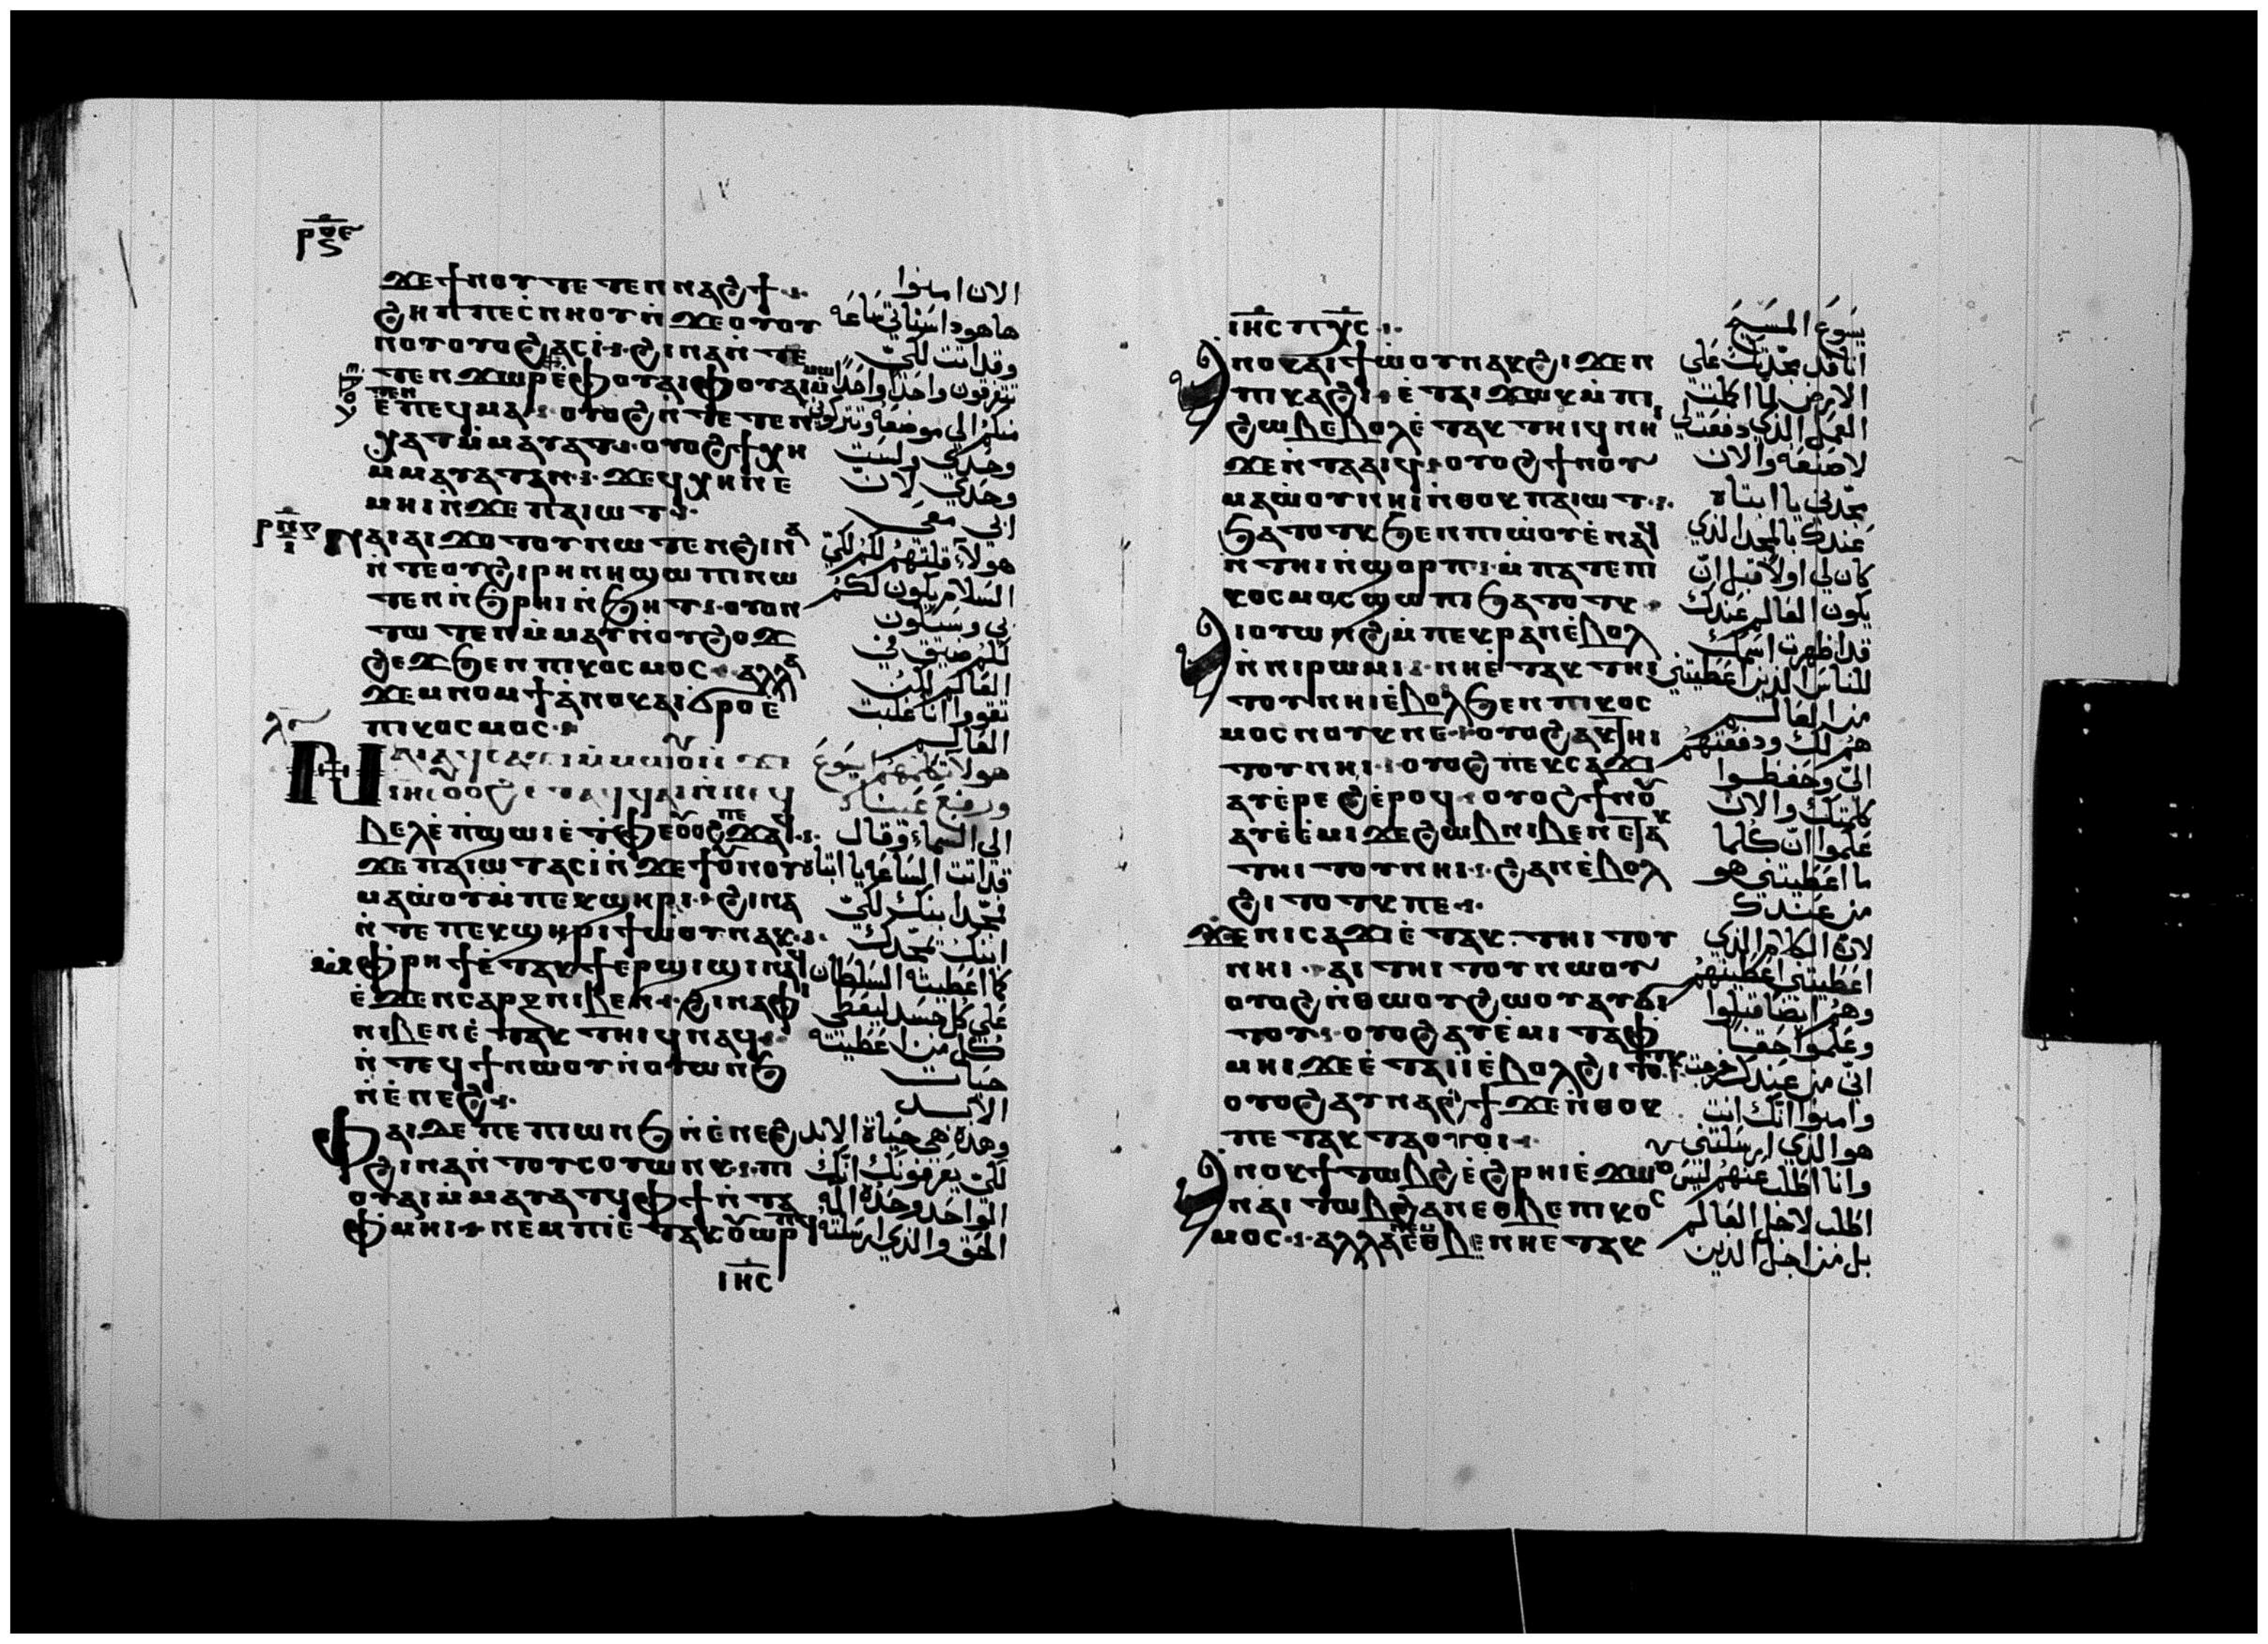 ϫⲉϯⲛⲟⲩ ⲧⲉⲧⲉⲛⲛⲁϩϯ
ϩⲏⲡⲡⲉ ⲥⲛⲏⲟⲩ ⲛϫⲉⲟⲩⲟⲩ
ⲛⲟⲩ ⲟⲩⲟϩ ⲁⲥⲓ ϩⲓⲛⲁ ⲛⲧⲉ
ⲧⲉⲛϫⲱⲣ ⲉⲫⲟⲩⲁⲓ ⲫⲟⲩⲁⲓ ⲙⲙⲱ
ⲧⲉⲛ
ⲉⲡⲉϥⲙⲁ ⲟⲩⲟϩ ⲛⲧⲉⲧⲉⲛ
ⲭⲁⲧ ⲙⲙⲁⲩⲁⲧ ⲟⲩⲟϩ ϯⲭⲏ
ⲙⲙⲁⲩⲁⲧ ⲁⲛ ϫⲉϥⲭⲏ ⲛⲉ
ⲙⲏⲓ ⲛϫⲉⲡⲁⲓⲱⲧ
ⲛⲁⲓ ⲁⲓϫⲟⲧⲟⲩ ⲛⲱⲧⲉⲛ ϩⲓⲛⲁ
ⲛⲧⲉⲟⲩϩⲓⲣⲏⲛⲏ ϣⲱⲡⲓ ⲛⲱ
ⲧⲉⲛ ⲛϧⲣⲏⲓ ⲛϧⲏⲧ ⲟⲩⲟⲛ
ⲧⲱⲧⲉⲛ ⲙⲙⲁⲩ ⲛⲟⲩϩⲟϫ
ϩⲉϫ ϧⲉⲛⲡⲓⲕⲟⲥⲙⲟⲥ ⲁⲗⲗⲁ
ϫⲉⲙⲛⲟⲙϯ ⲁⲛⲟⲕ ⲁⲓϭⲣⲟ ⲉ
ⲡⲓⲕⲟⲥⲙⲟⲥ
ⲃⲉⲗ ⲉⲡϣⲱⲓ ⲉⲧⲫⲉ ⲟⲩⲟϩ ⲡⲉϫⲁϥ
ϫⲉⲡⲁⲓⲱⲧ ⲁⲥⲓ ⲛϫⲉϯⲟⲩⲛⲟⲩ
ⲙⲁⲱⲟⲩ ⲙⲡⲉⲕϣⲏⲣⲓ ϩⲓⲛⲁ
ⲛⲧⲉⲡⲉⲕϣⲏⲣⲓ ϯⲱⲟⲩ ⲛⲁⲕ
ⲙⲫⲣⲏϯ ⲉⲧⲁⲕϯⲉⲣϣⲓϣⲓ ⲛⲁϥ
ⲉϫⲉⲛ ⲥⲁⲣⲝ ⲛⲓⲃⲉⲛ ϩⲓⲛⲁ ⲫⲏ
ⲛⲓⲃⲉⲛ ⲉⲧⲁⲕⲧⲏⲓϥ ⲛⲁϥ
ⲛⲧⲉϥϯ ⲛⲱⲟⲩ ⲛⲟⲩⲱⲛϧ
ⲛⲉⲛⲉϩ
ⲫⲁⲓ ⲇⲉ ⲡⲉ ⲡⲓⲱⲛϧ ⲛⲉⲛⲉϩ
ϩⲓⲛⲁ ⲛⲧⲟⲩⲥⲟⲩⲱⲛⲕ ⲡⲓ
ⲟⲩⲁⲓ ⲙⲙⲁⲩⲁⲧϥ ⲫϯ ⲛⲧⲁ
ⲫⲙⲏⲓ ⲛⲉⲙ ⲡⲓⲉⲧⲁⲕⲟⲩⲱⲣⲡϥ
ⲓⲏⲥ
الان امنوا
هاهوذا ستاتي ساعه
وقد اتت لكي
تتفرقون واحدا واحدا
منكم الي موضعه وتتركوني
وحدي ولست
وحدي لان
ابي معي
هولاء قلتهم لكم لكي
السلام يكون لكم
بي وسيكون
لكم ضيق في
العالم لكن
تقووا انا غلبت
العالم
هولا تكلم بهم يسوع
ورفع عيناه
الي السماء وقال
قد اتت الساعه يا ابتاه
مجد ابنك لكي
ابنك يمجدك
كما اعطيته السلطان
علي كل جسد ليعطي
كل من اعطيته
حيات
الابد
وهذه هي حياة الابد
لكي يعرفونك انك
الواحد وحده اله
الحق والذي ارسلته
ⲓⲏⲥ ⲡⲭⲥ
ⲁⲛⲟⲕ ⲁⲓϯⲱⲟⲩ ⲛⲁⲕ ϩⲓϫⲉⲛ
ⲡⲓⲕⲁϩⲓ ⲉⲧⲁⲓϫⲱⲕ ⲙⲡⲓ
ϩⲱⲃ ⲉⲃⲟⲗ ⲉⲧⲁⲕⲧⲏⲓϥ ⲛⲏⲓ
ϫⲉⲛⲧⲁⲁⲓϥ ⲟⲩⲟϩ ϯⲛⲟⲩ
ⲙⲁⲱⲟⲩ ⲛⲏⲓ ⲛⲑⲟⲕ ⲡⲁⲓⲱⲧ
ϧⲁⲧⲟⲧⲕ ϧⲉⲛⲡⲓⲱⲟⲩ ⲉⲛⲁϥ
ⲛⲧⲏⲓ ⲛϣⲟⲣⲡ ⲙⲡⲁⲧⲉⲡⲓ
ⲕⲟⲥⲙⲟⲥ ϣⲱⲡⲓ ϧⲁⲧⲟⲧⲕ
ⲁⲓⲟⲩⲱⲛϩ ⲙⲡⲉⲕⲣⲁⲛ ⲉⲃⲟⲗ
ⲛⲛⲓⲣⲱⲙⲓ ⲛⲏⲉⲧⲁⲕⲧⲏⲓ
ⲧⲟⲩ ⲛⲏⲓ ⲉⲃⲟⲗ ϧⲉⲛⲡⲓⲕⲟⲥ
ⲙⲟⲥ ⲛⲟⲩⲕ ⲛⲉ ⲟⲩⲟϩ ⲁⲕⲧⲏⲓ
ⲧⲟⲩ ⲛⲏⲓ ⲟⲩⲟϩ ⲡⲉⲕⲥⲁϫⲓ
ⲁⲩⲉⲣⲉϩ ⲉⲣⲟϥ ⲟⲩⲟϩ ϯⲛⲟⲩ
ⲁⲩⲉⲙⲓ ϫⲉϩⲱⲃ ⲛⲓⲃⲉⲛ ⲉⲧⲁⲕ
ⲧⲏⲓⲧⲟⲩ ⲛⲏⲓ ϩⲁⲛⲉⲃⲟⲗ
ϩⲓⲧⲟⲧⲕ ⲛⲉ
ϫⲉⲛⲓⲥⲁϫⲓ ⲉⲧⲁⲕⲧⲏⲓⲧⲟⲩ
ⲛⲏⲓ ⲁⲓⲧⲏⲓⲧⲟⲩ ⲛⲱⲟⲩ
ⲟⲩⲟϩ ⲛⲑⲱⲟⲩ ϩⲱⲟⲩ ⲁⲩϭⲓ
ⲧⲟⲩ ⲟⲩⲟϩ ⲁⲩⲉⲙⲓ ⲧⲁⲫ
ⲙⲏⲓ ϫⲉⲉⲧⲁⲓⲓ ⲉⲃⲟⲗ ϩⲓⲧⲟⲧⲕ
ⲟⲩⲟϩ ⲁⲩⲛⲁϩϯ ϫⲉⲛⲑⲟⲕ
ⲡⲉⲧⲁⲕⲧⲁⲟⲩⲟⲓ
ⲁⲛⲟⲕ ϯⲧⲱⲃϩ ⲉϩⲣⲏⲓ ⲉϫⲱⲟⲩ
ⲛⲁⲓⲧⲱⲃϩ ⲁⲛ ⲉⲑⲃⲉ ⲡⲓⲕⲟⲥ
ⲙⲟⲥ ⲁⲗⲗⲁ ⲉⲑⲃⲉ ⲛⲏⲉⲧⲁⲕ
يسوع المسيح
انا قد مجدتك علي
الارض لما اكملت
العمل الذي دفعته لي
لاصنعه والان
مجدني يا ابتاه
عندك بالمجد الذي
كان لي اولا قبل ان
يكون العالم عندك
قد اظهرت اسمك
للناس الذين اعطيتني
من العالم
هم لك ودفعتهم
الي وحفظوا
كلمتك والان
علموا ان كلما
ما اعطيتني هو
من عندك
لان الكلام الذي
اعطيتني اعطيتهم
وهم ايضا قبلوا
وعلموا حقا
اني من عندك خرجت
وامنوا انك انت
هو الذي ارسلتني
وانا اطلب عنهم ليس
اطلب لاجل العالم
بل من اجل الذين